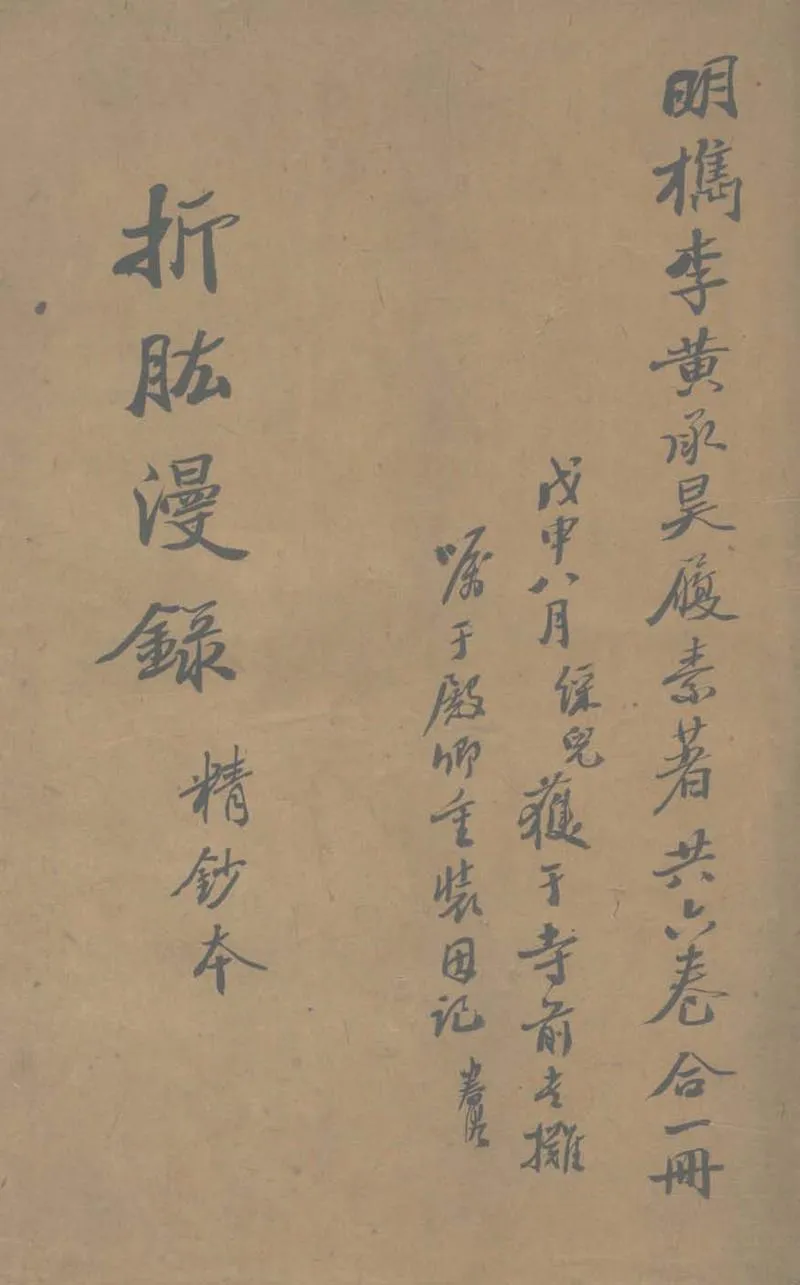 明檇李黄承昊履素著共六卷合一冊
戊申八月兒獲于寺前攤
嘱于殿卿重裝因記
折肱漫錄
精鈔本